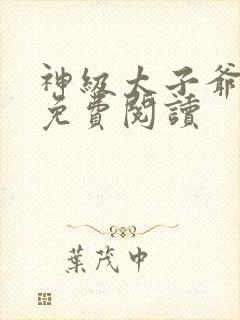 神級大子爺
免費閱讀
葉茂中